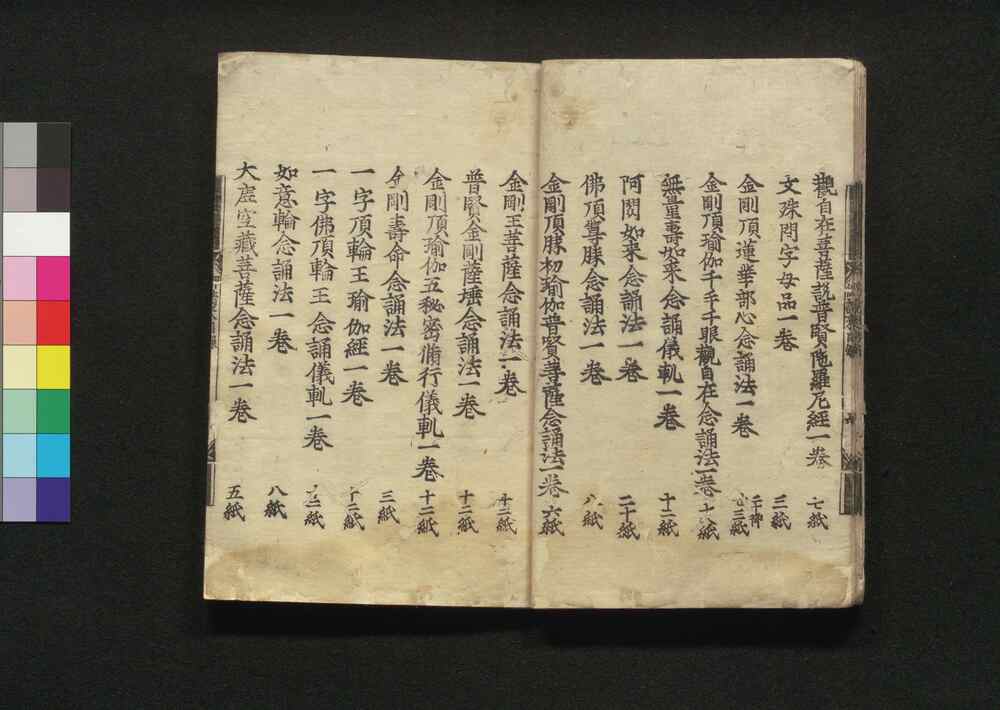 觀自在菩薩說普賢陁羅尼經一卷 七紙
文殊問字母品一卷 三紙
金剛頂蓮華部心念誦法一卷 三紙
金剛頂瑜伽千手千眼觀自在念誦法一卷 十紙
無量壽如来念誦儀軌一卷 十二紙
阿閦如来念誦法一卷 二十紙
佛頂尊勝念誦法一卷 八紙
金剛頂勝初瑜伽普賢菩薩念誦法一卷 六紙
金剛王菩薩念誦法一卷 十二紙
普賢金剛薩埵念誦法一卷 十二紙
金剛頂瑜伽五秘密脩行儀軌一卷 十二紙
金剛壽命念誦法一卷 三紙
一字頂輪王瑜伽經一卷 十二紙
一字佛頂輪王念誦儀軌一卷 紙
如意輪念誦法一卷 八紙
大虛空藏菩薩念誦法一卷 五紙